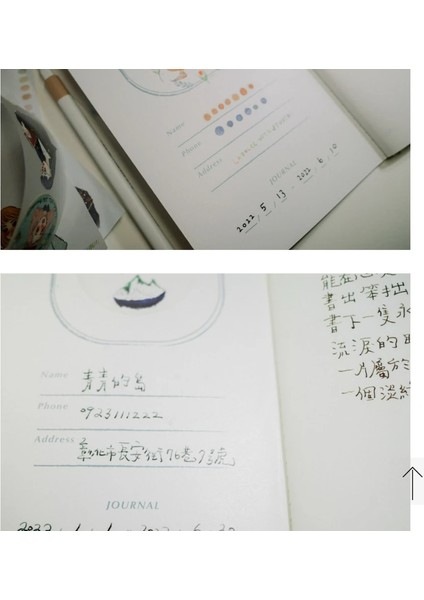 Name
Phone
Address
JOURNAL
2022. 5. 13 - 2022. 6. 10
Name 青青的島
Phone 0923111222
Address 彰化市長安街76巷7號
JOURNAL
書出笨拙
書下一隻永
流淚的
一片屬於
一個淡綠